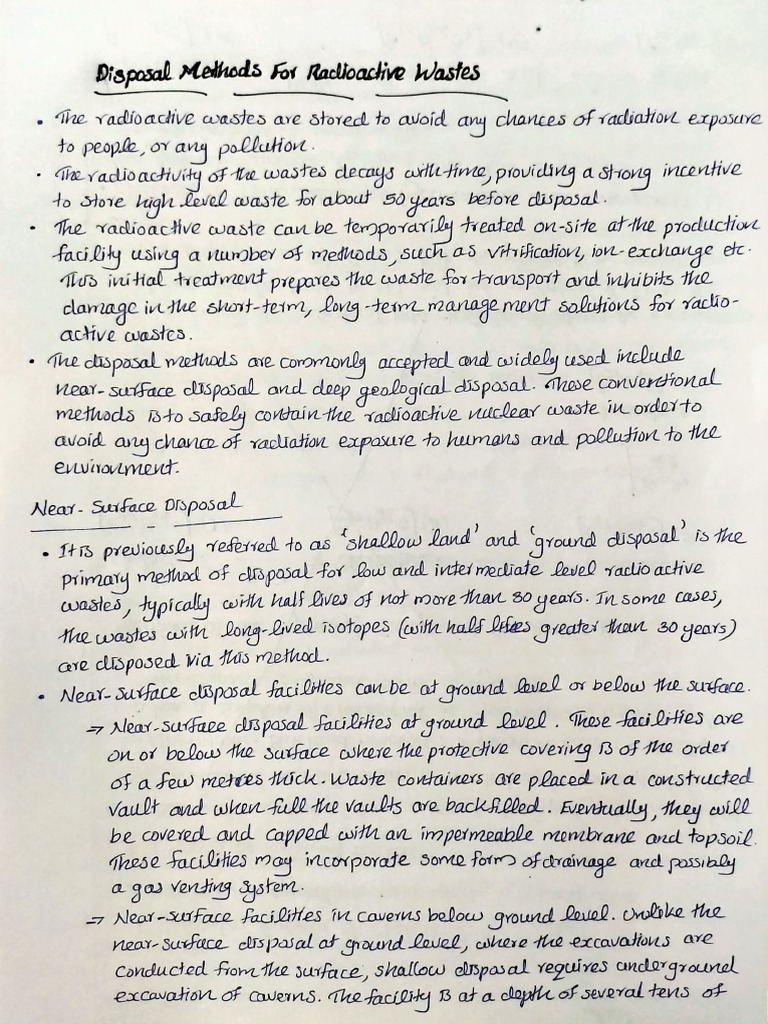 Disposal Methods For Radioactive Wastes
• The radioactive wastes are stored to avoid any chances of radiation exposure
to people, or any pollution.
• The radioactivity of the wastes decays with time, providing a strong incentive
to store high level waste for about 50 years before disposal.
• The radioactive waste can be temporarily treated on-site at the production
facility using a number of methods, such as vitrification, ion-exchange etc.
This initial treatment prepares the waste for transport and inhibits the
damage in the short-term, long-term management solutions for radio-
active wastes.
• The disposal methods are commonly accepted and widely used include
near-surface disposal and deep geological disposal. These conventional
methods is to safely contain the radioactive nuclear waste in order to
avoid any chance of radiation exposure to humans and pollution to the
environment.
Near-Surface Disposal
• It is previously referred to as 'shallow land' and 'ground disposal' is the
primary method of disposal for low and intermediate level radioactive
wastes, typically with half lives of not more than 30 years. In some cases,
the wastes with long-lived isotopes (with half lives greater than 30 years)
are disposed via this method.
• Near-surface disposal facilities can be at ground level or below the surface.
⇒ Near-surface disposal facilities at ground level. These facilities are
on or below the surface where the protective covering is of the order
of a few metres thick. Waste containers are placed in a constructed
vault and when full the vaults are backfilled. Eventually, they will
be covered and capped with an impermeable membrane and topsoil.
These facilities may incorporate some form of drainage and possibly
a gas venting system.
⇒ Near-surface facilities in caverns below ground level. Unlike the
near-surface disposal at ground level, where the excavations are
conducted from the surface, shallow disposal requires underground
excavation of caverns. The facility is at a depth of several tens of